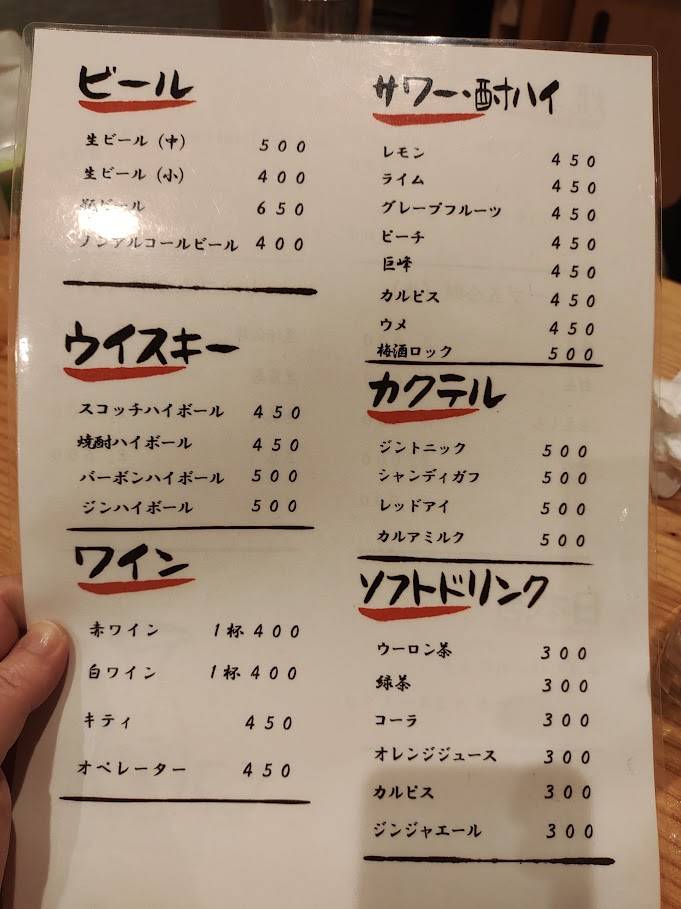 ビール
生ビール (中) 500
生ビール (小) 400
瓶ビール 650
ノンアルコールビール 400
ウイスキー
スコッチハイボール 450
焼酎ハイボール 450
バーボンハイボール 500
ジンハイボール 500
ワイン
赤ワイン 1杯400
白ワイン 1杯400
キティ 450
オペレーター 450
サワー・酎ハイ
レモン 450
ライム 450
グレープフルーツ 450
ピーチ 450
巨峰 450
カルピス 450
ウメ 450
梅酒ロック 500
カクテル
ジントニック 500
シャンディガフ 500
レッドアイ 500
カルアミルク 500
ソフトドリンク
ウーロン茶 300
緑茶 300
コーラ 300
オレンジジュース 300
カルピス 300
ジンジャエール 300